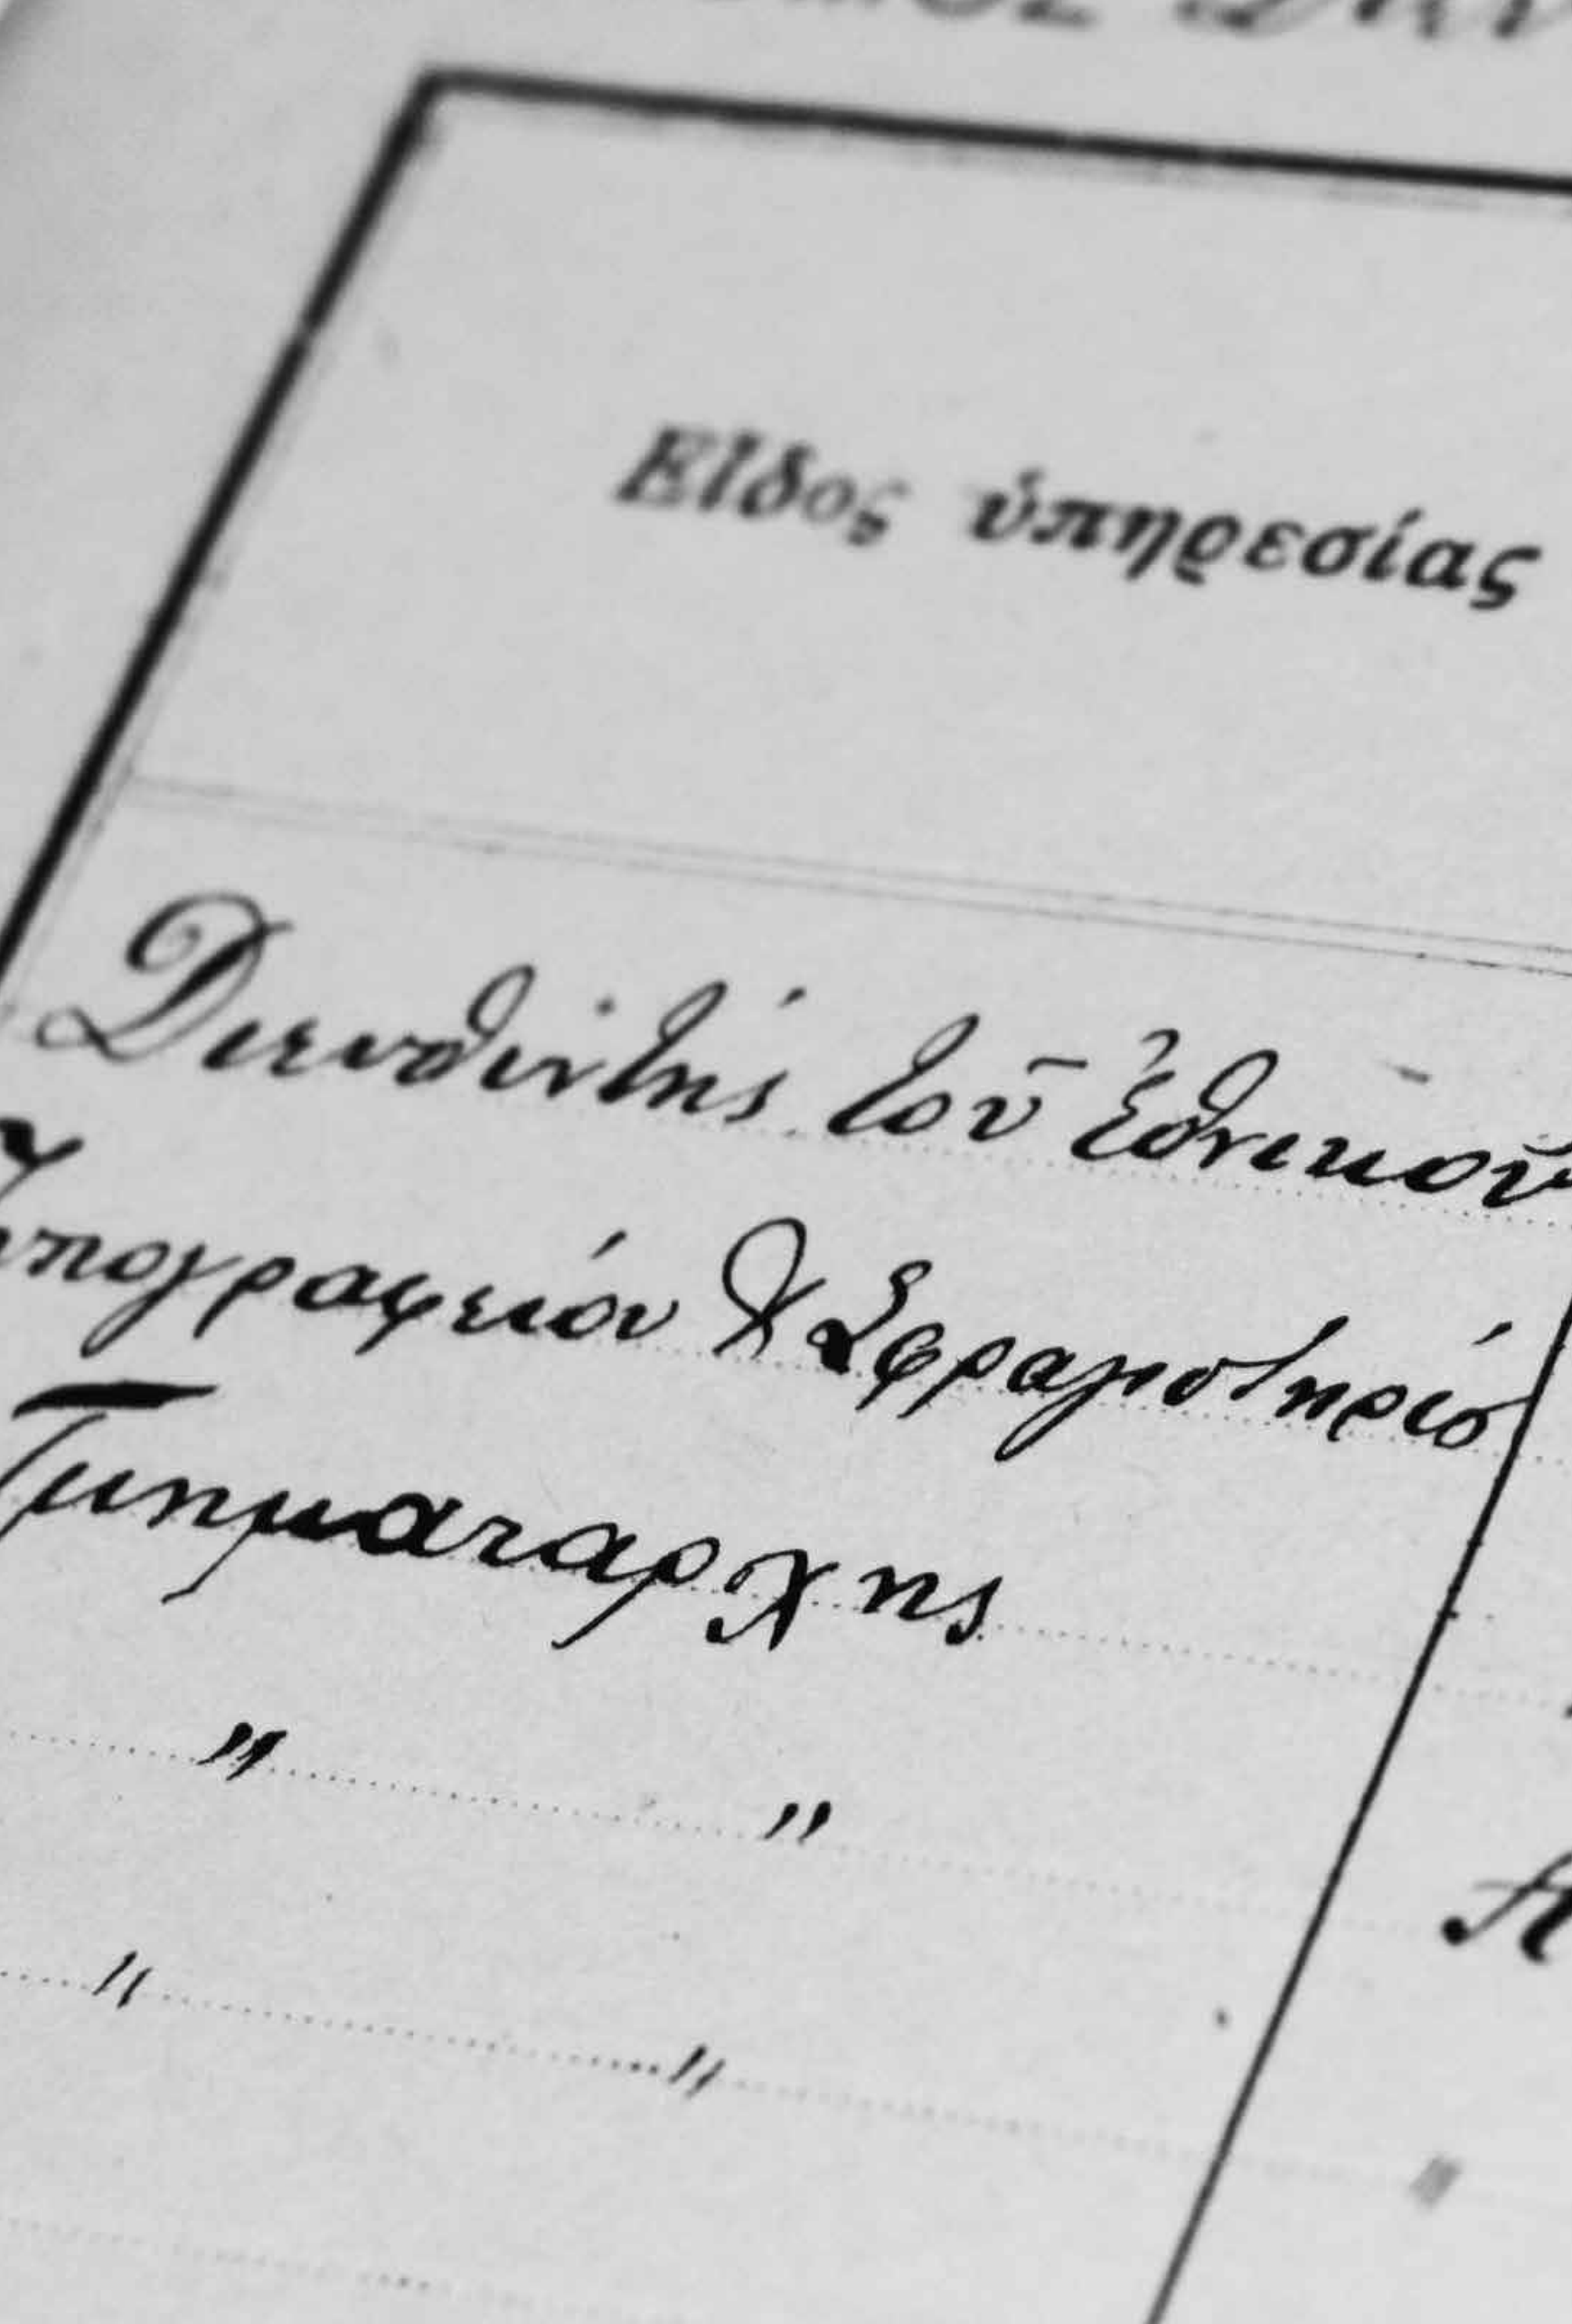 Εἶδος ὑπηρεσίας
Διευθυντής τοῦ Ἐθνικοῦ
Τυπογραφείου & Σφραγιστηρίο
Τμηματαρχης
" "
" "